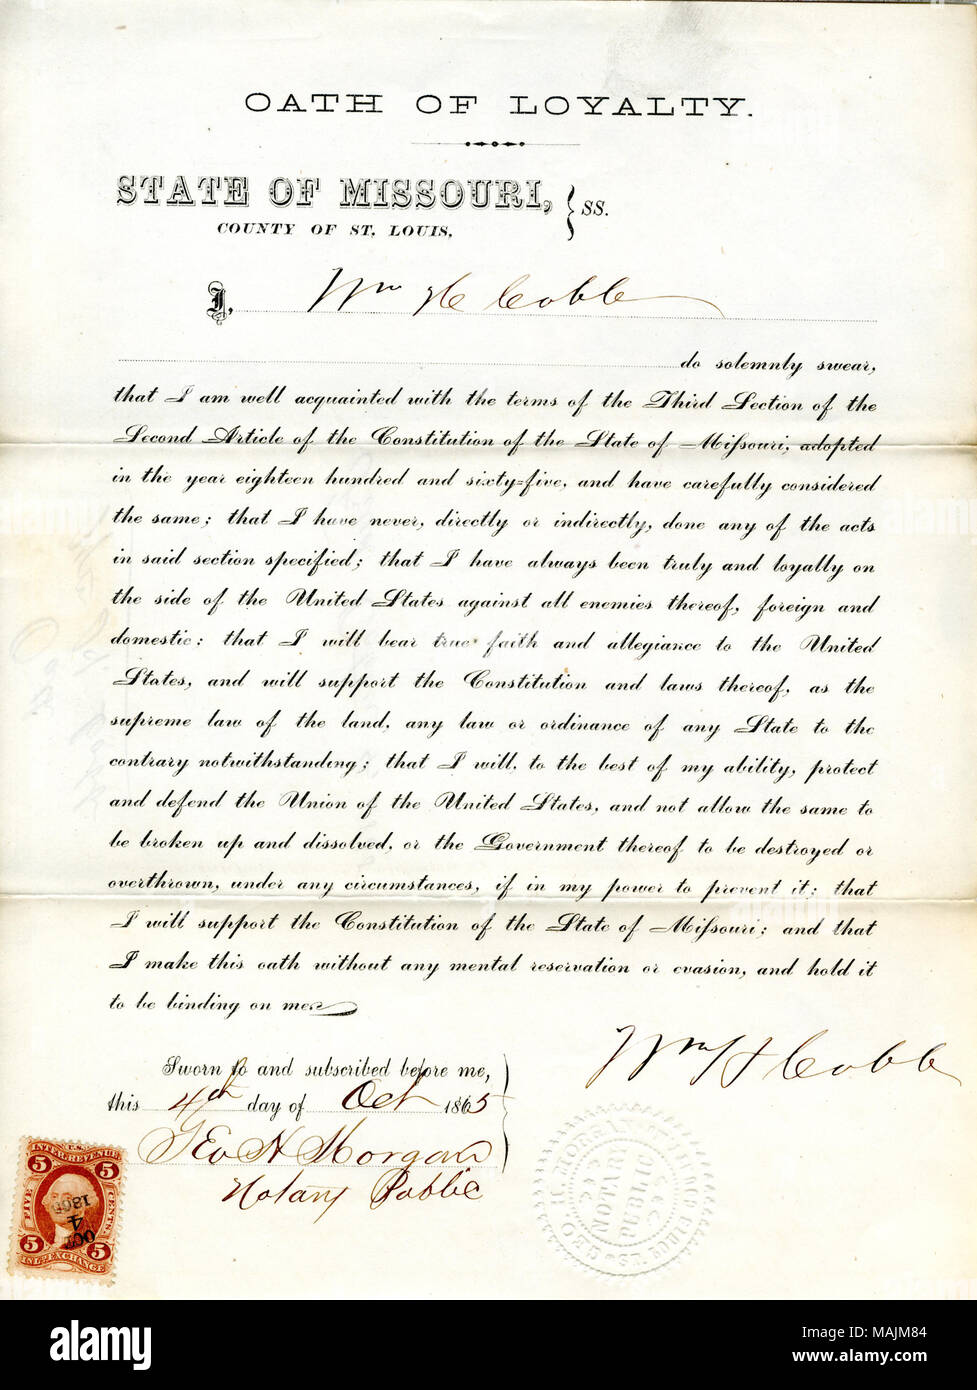 OATH OF LOYALTY.
STATE OF MISSOURI,
COUNTY OF ST. LOUIS.
} SS.
I, Wm H Cobb
do solemnly swear,
that I am well acquainted with the terms of the Third Section of the
Second Article of the Constitution of the State of Miſsouri, adopted
in the year eighteen hundred and sixty=five, and have carefully considered
the same; that I have never, directly or indirectly, done any of the acts
in said section specified; that I have always been truly and loyally on
the side of the United States against all enemies thereof, foreign and
domestic: that I will bear true faith and allegiance to the United
States, and will support the Constitution and laws thereof, as the
supreme law of the land, any law or ordinance of any State to the
contrary notwithstanding; that I will, to the best of my ability, protect
and defend the Union of the United States, and not allow the same to
be broken up and dissolved, or the Government thereof to be destroyed or
overthrown, under any circumstances, if in my power to prevent it; that
I will support the Constitution of the State of Miſsouri; and that
I make this oath without any mental reservation or evasion, and hold it
to be binding on me
Wm H Cobb
Sworn to and subscribed before me,
this 4th day of Oct 1865
Geo H Morgan
Notary Public
U.S.
INTER. REVENUE
5 5
FIVE CENTS
OCT 4 186
5 5
INL. EXCHANGE
GEO. H. MORGAN
NOTARY
PUBLIC
ST. LOUIS
alamy
Image ID: MAJM84
www.alamy.com